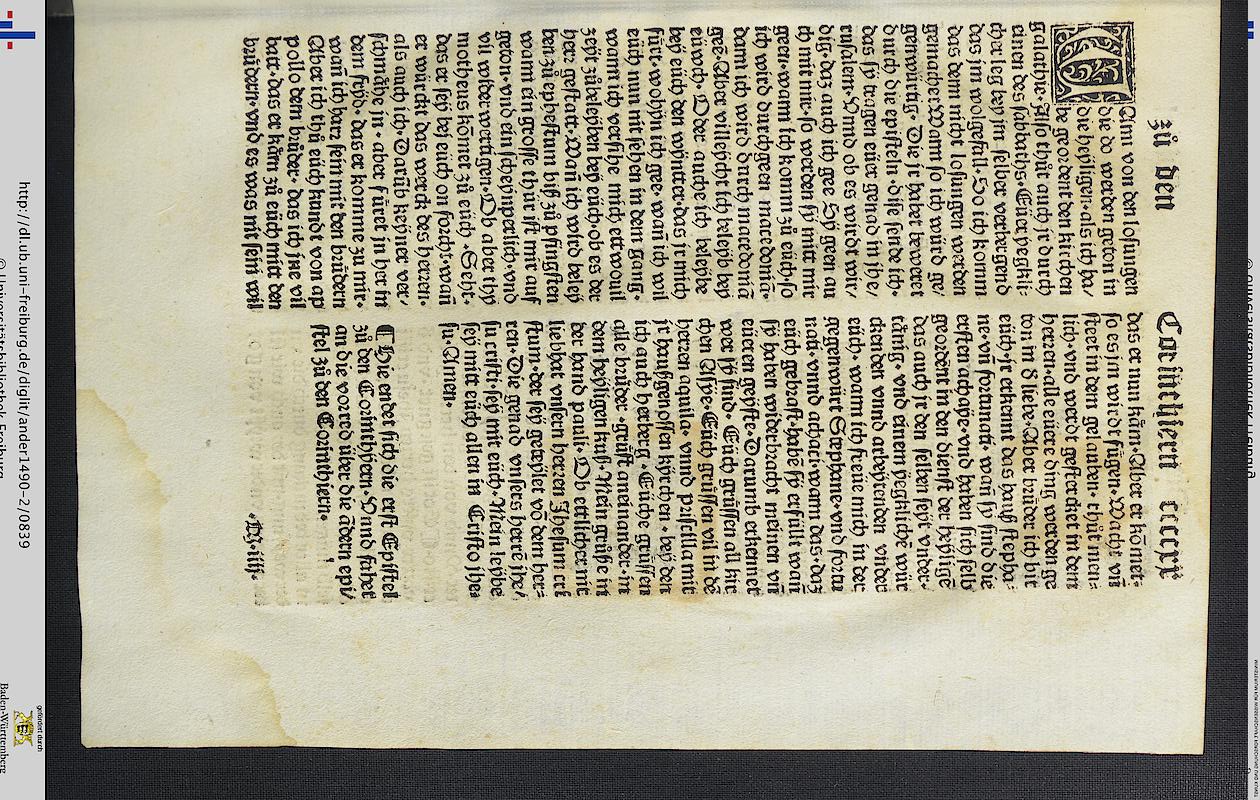 zů den
Corinthiern cccxi
Wnn von den losungen
die do werden geton in
die heyligen·als ich ha/
be geordent den kirchen
galathie·Also thůt auch jr durch
einen des sabbaths·Euer yegkli-
cher leg bey im selber verbergend
das jm wolgefall·So ich komm
das denn nicht losungen werden
gemachet Wann so ich würd ge/
genwürtig·Die jr habet beweret
durch die episteln·dise sende ich·
das sy tragen euer genad in ihe/
rusalem·Vnnd ob es wirdt wir/
dig·daz auch ich gee Sy geen au
ch mit mir·so werden sy mitt mir
geen·wann ich komm zů eüch·so
ich wird durchgeen macedoniā·
dann ich wird durch macedoniā
gee·Aber villeycht ich beleyb bey
eüwch·Oder auche ich beleybe
bey euch den winter·das jr mich
fůrt·wohyn ich gee·wan ich wil
eüch nun nit sehen in dem gang·
wann ich versihe mich ettwouil
zeyt zůbeleyben bey eüch·ob es der
herr gestatt·Wañ ich wird beley
ben zů epheßum biß zů pfingsten
wann ein grosse thur ist mir auf
geton·vnd ein scheinperlich·vnd
vil widerwertigen·Ob aber thy
motheus kōmet zů eüch·Seht·
das er sey bei eüch on forcht·wañ
er würckt das werck des herren·
als auch ich·Darūb keyner ver/
schmåhe jn·aber fůret jn her in
dem fryd·das er komme zů mir·
wañ ich harr sein mit den brüdern
Aber ich thů eüch kundt von ap
pollo dem brůder·das ich jne vil
batt·das er kåm zů eüch mitt den
brüdern·vnd es was mit sein will
das er nun kåm·Aber er kōmet·
so es im wirdt fůgen·Wacht vñ
steet in dem gelauben·thůt men-
lich·vnd werdt gestercket in dem
herren·alle euere ding werden ge
ton in d̕ liebe·Aber brüder ich bit
eüch·ir erkennt das hauß stepha
ne·vñ fortunati·wañ sy sind die
ersten achaye·vnd haben sich selb
geordent in den dienst der heylige
das auch jr den selben seyt vnder-
tånig·vnd einem yegkliche wür
ckenden vnnd arbeyttenden vnder
eüch·wann ich freüe mich in der
gegenwürt Stephane·vnd fortu
nati·vnnd achaici·wann das·daz
euch gebrast·habē sy erfüllt wañ
sy haben widerbracht meinen vñ
eüeren geyste·Darumb erkennet
wer sy sind·Eüch grüssen all kir
chen Asye·Eüch grüssen vil in dē
herren aquila·vnnd priscilla mit
jr haußgenossen kyrchen·bey den
ich auch herberg·Eüche grüssen
alle brůder·grüst aneinander·in
dem heyligen kuß·Mein grůße mit
der hand pauli·Ob ettlicher nit
liebhat vnsern herren Jhesum cri
stum·der sey geteylet vō dem her-
ren·Die genad vnsers herrē jhe/
su cristi·sey mit eüch·Mein leybe
sey mitt eüch allen in Cristo jhe
su·Amen·
¶Hie endet sich die erst Epistel
zů den Corinthyern·Vnnd fahet
an die vorred über die ādern epi/
stel zů den Corinthiern·
·M·iij·
http://dl.ub.uni-freiburg.de/diglit/ander1490-2/0839
© Universitätsbibliothek Freiburg
gefördert durch
Baden-Württemberg